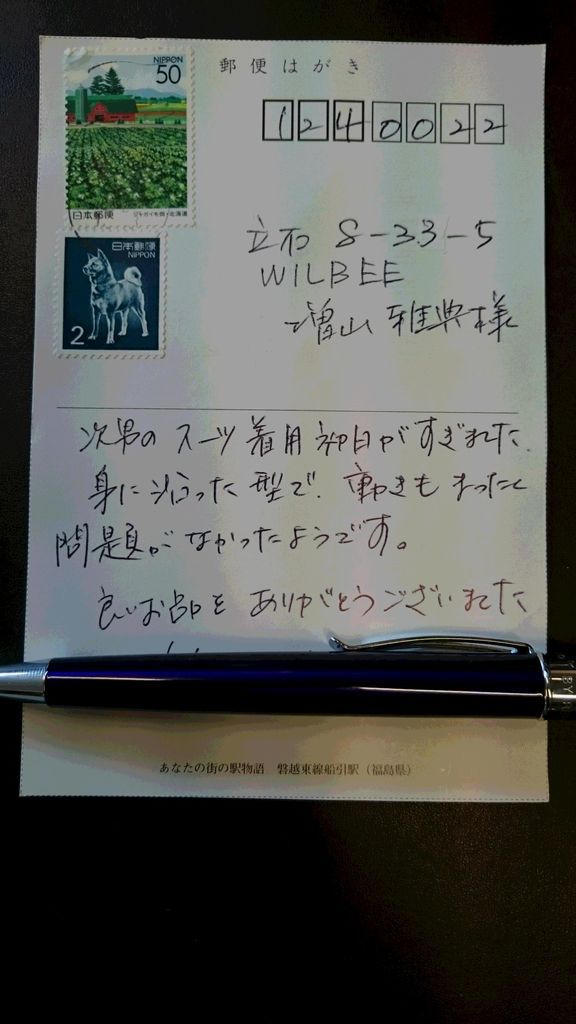 NIPPON
50
日本郵便
ジャガイモ畑・北海道
日本郵便
NIPPON
2
郵便はがき
1240022
立石 8-33-5
WILBEE
増山 雅典様
次男の スーツ 着用初日がすぎました.
身に沿った型で、動きもまったく
問題がなかったようです。
良いお品を ありがとうございました
あなたの街の駅物語 磐越東線船引駅（福島県）